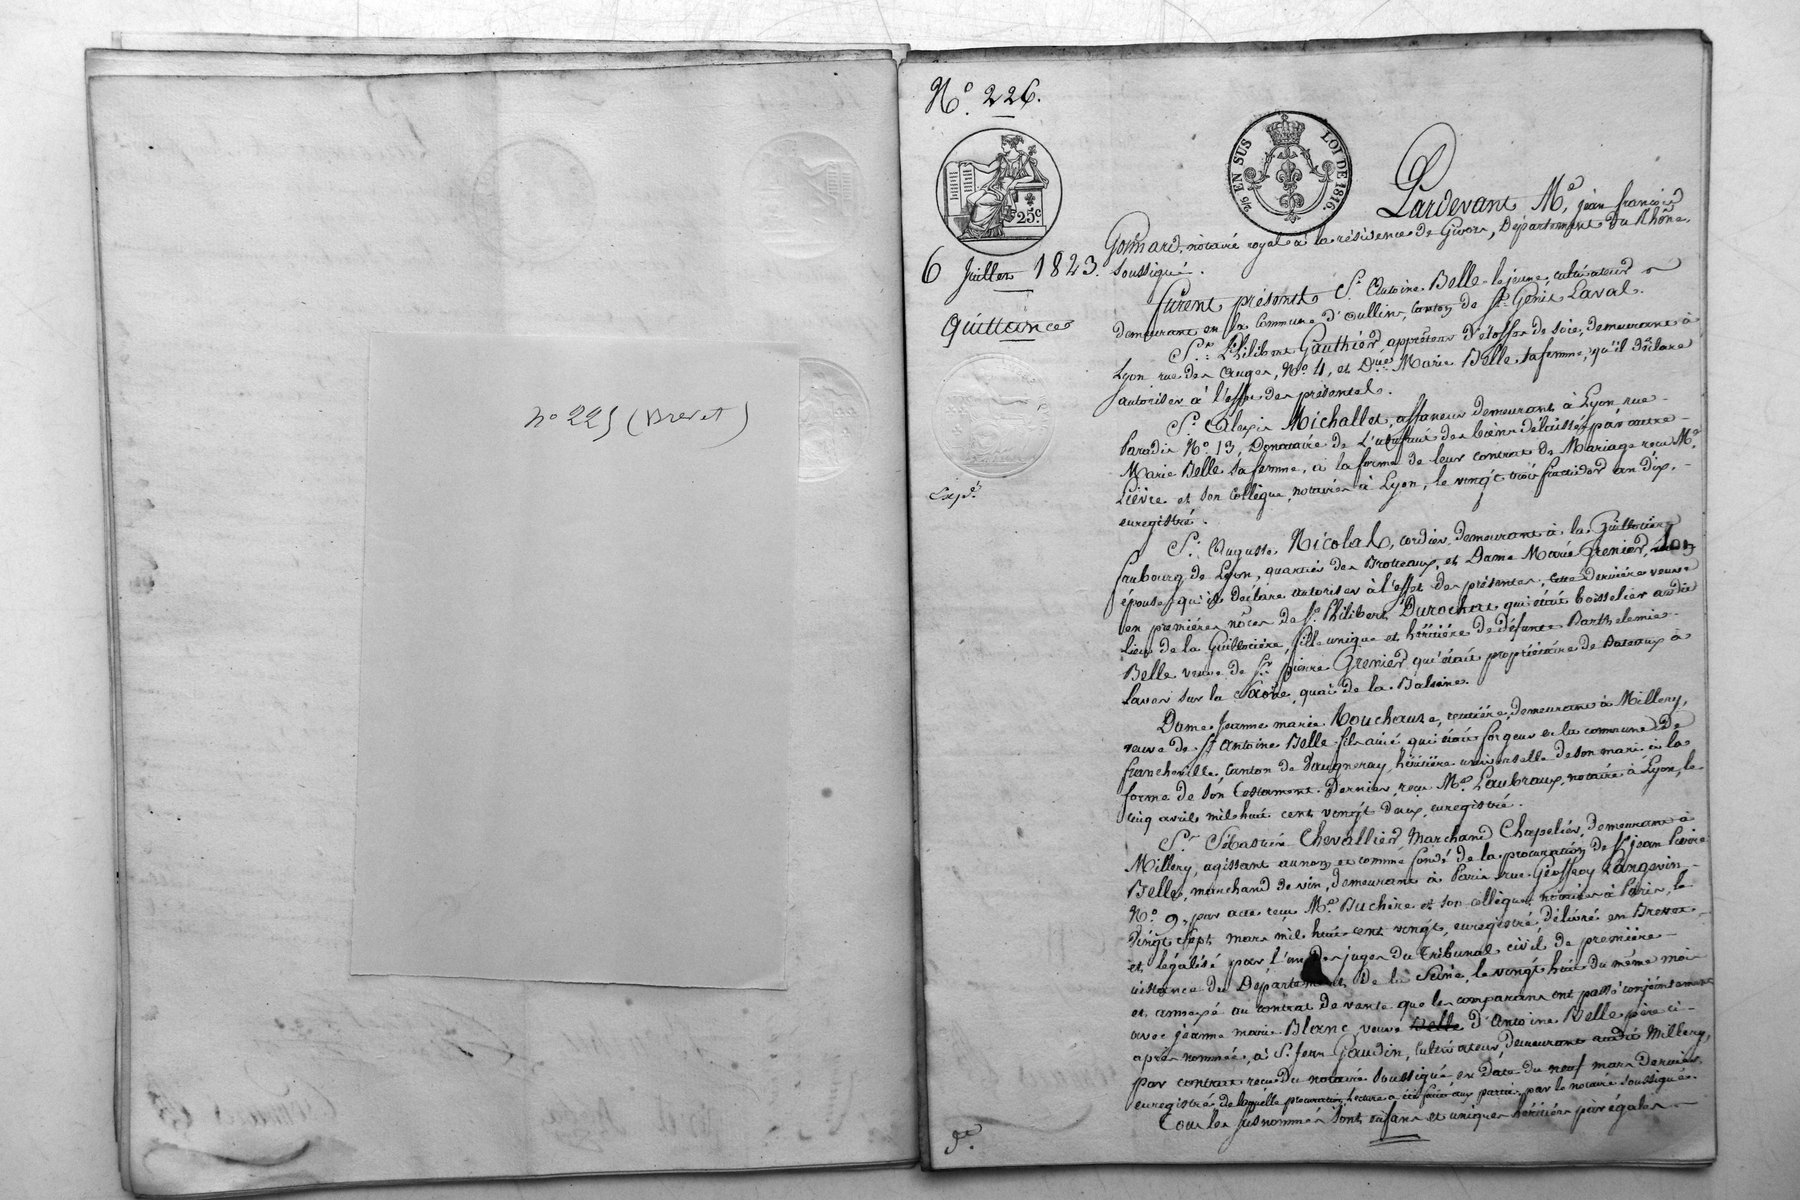 n° 225 (Brevet)
N° 226.
25c
2/5 EN SUS LOI DE 1816.
6 Juillet 1823.
Quittance
Exp.é
Pardevant M.e jean françois
Goinard, notaire royal à la résidence de Givors, Département du Rhône,
soussigné.
furent présents S.r Antoine Belle le jeune, cultivateur
demeurant en la Commune d'oullins, canton de S.t Genis Laval.
S.r Philibert Gauthier, appréteur d'étoffes de soie, demeurant à
Lyon rue des Auges, N.o 4, et D.me Marie Belle sa femme, qu'il déclare
autoriser à l'effet des présentes.
S.r Alexis Michallet, affaneur demeurant à Lyon rue
Paradis N.o 13, Donataire de L'usufruit des biens délaissés par autre
Marie Belle sa femme, à la forme de leur contrat de Mariage reçu M.e
Lièvre et son collègue, notaires à Lyon, le vingt trois fructidor an dix,
enregistré.
S.r Auguste Nicolas, cordier, demeurant à la Guillotière
faubourg de Lyon, quartier des Brotteaux, et Dame Marie Grenier, son
épouse, qu'il déclare autoriser à l'effet des présentes, cette dernière veuve
en premières nôces de S.r Philibert Durochat qui était boisselier audit
Lieu de la Guillotière, fille unique et héritière de défunte Barthelemie
Belle veuve de S.r pierre Grenier qui était propriétaire de Bateaux à
Laver sur la Saône, quai de la Baleine.
Dame Jeanne marie Bouchause, rentière, demeurant à Millery,
veuve de S.r Antoine Belle fils ainé qui était forgeur en la commune de
francheville, canton de Vaugneray, héritière universelle de son mari à la
forme de son testament dernier, reçu M.e Laubraux, notaire à Lyon, le
cinq avril mil huit cent vingt deux, enregistré.
S.r Sébastien Chevallier, Marchand Chapelier, demeurant à
Millery, agissant au nom et comme fondé de la procuration de S.r jean Pierre
Belle, marchand de vin, demeurant à Paris rue Geoffroy Langevin
N.o 9, par acte reçu M.e Buchère et son collègue, notaires à Paris, le
vingt sept mars mil huit cent vingt, enregistré, délivré en Brevet
et légalisé par l'un des juges du Tribunal civil de première
instance du Département de la Seine, le vingt huit du même mois
et annexé au contrat de vente que les comparans ont passé conjointement
avec jeanne marie Blanc, veuve Belle d'Antoine Belle père ci-
après nommée, à S.r Jean Gaudin, cultivateur, demeurant audit Millery,
par contrat reçu du notaire soussigné en date du neuf mars dernier
enregistré de laquelle procuration lecture a été faite aux parties par le notaire soussigné.
Tous les susnommés sont enfans et uniques héritiers par égales